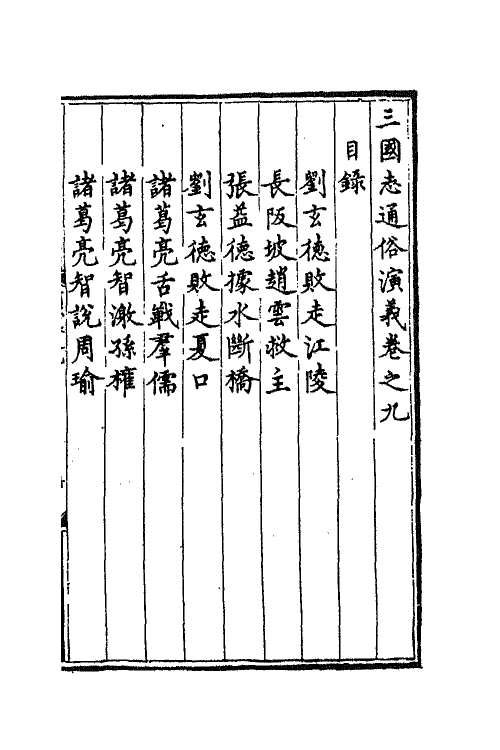 三國志通俗演義卷之九
目録
劉玄德敗走江陵
長阪坡趙雲救主
張益德據水斷橋
劉玄德敗走夏口
諸葛亮舌戰羣儒
諸葛亮智激孫權
諸葛亮智說周瑜